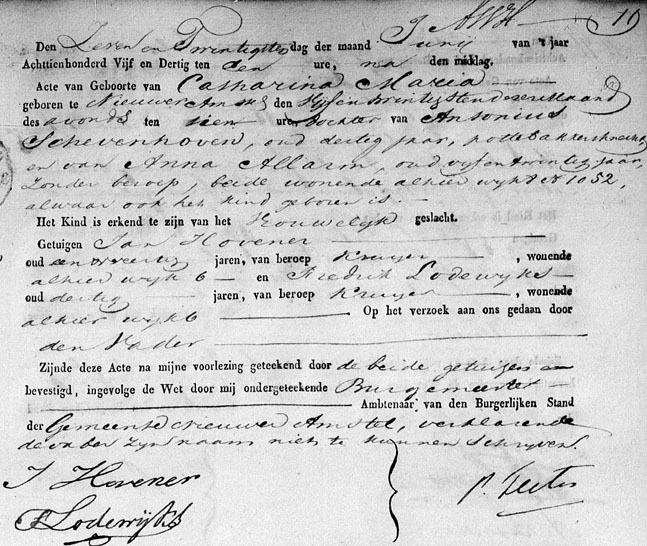 16
Den Zeven en Twintigsten dag der maand Junij van 't jaar
Achttienhonderd Vijf en Dertig ten een ure, na den middag.
Acte van Geboorte van Catharina Maria
geboren te Nieuwer Amstel den Vijf en twintigsten dezer Maand
des avonds ten tien ure dochter van Antonius
Schevenhoven, oud dertig jaar, pottebakkersknecht
en van Anna Allarm, oud vijf en twintig jaar,
zonder beroep, beide wonende alhier wijk 6 No 1052,
alwaar ook het kind geboren is.
Het Kind is erkend te zijn van het Vrouwelijk geslacht.
Getuigen Jan Hovener
oud een en veertig jaren, van beroep Kruyer, wonende
alhier wijk 6 en Fredrik Lodewijks
oud dertig jaren, van beroep Kruyer, wonende
alhier wijk 6 Op het verzoek aan ons gedaan door
den Vader
Zijnde deze Acte na mijne voorlezing geteekend door de beide getuigen en
bevestigd, ingevolge de Wet door mij ondergeteekende Burgemeester
Ambtenaar van den Burgerlijken Stand
der Gemeente Nieuwer Amstel, verklarende
de vader zyn naam niet te kunnen Schryven.
J Hovener
F Lodewijks